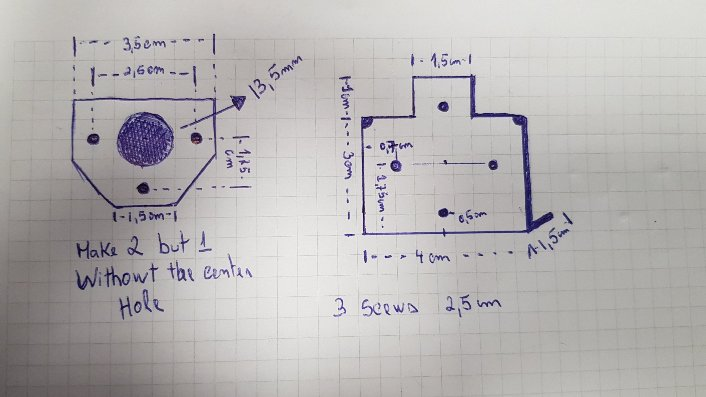 3,5cm
2,6cm
13,5mm
1,75
cm
1,5cm
Make 2 but 1
Without the center
Hole
1,5cm
1cm
3cm
0,7cm
1,75cm
0,5cm
4cm
1,5cm
3 Scews 2,5cm